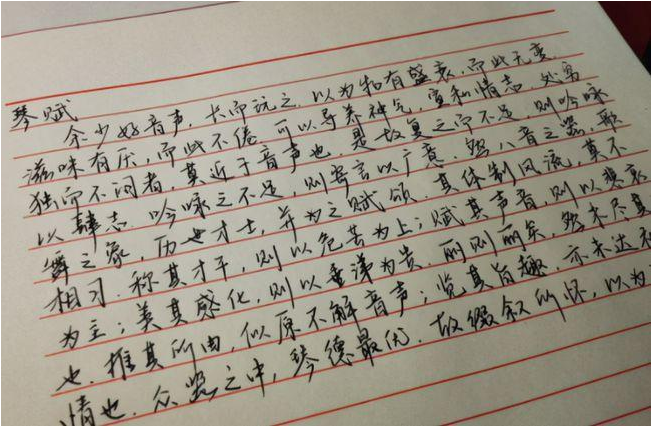 琴赋
余少好音声,长而玩之.以为物有盛衰,而此无变.
滋味有厌,而此不倦.可以导养神气,宣和情志.处穷
独而不闷者,莫近于音声也.是故复之而不足,则吟咏
以肆志.吟咏之不足,则寄言以广意.然八音之器,歌
舞之象,历世才士,并为之赋颂.其体制风流,莫不
相习.称其才干,则以危苦为上;赋其声音,则以悲哀
为主;美其感化,则以垂涕为贵.丽则丽矣,然未尽其
也.推其所由,似原不解音声;览其旨趣,亦未达礼
情也.众器之中,琴德最优.故缀叙所怀,以为